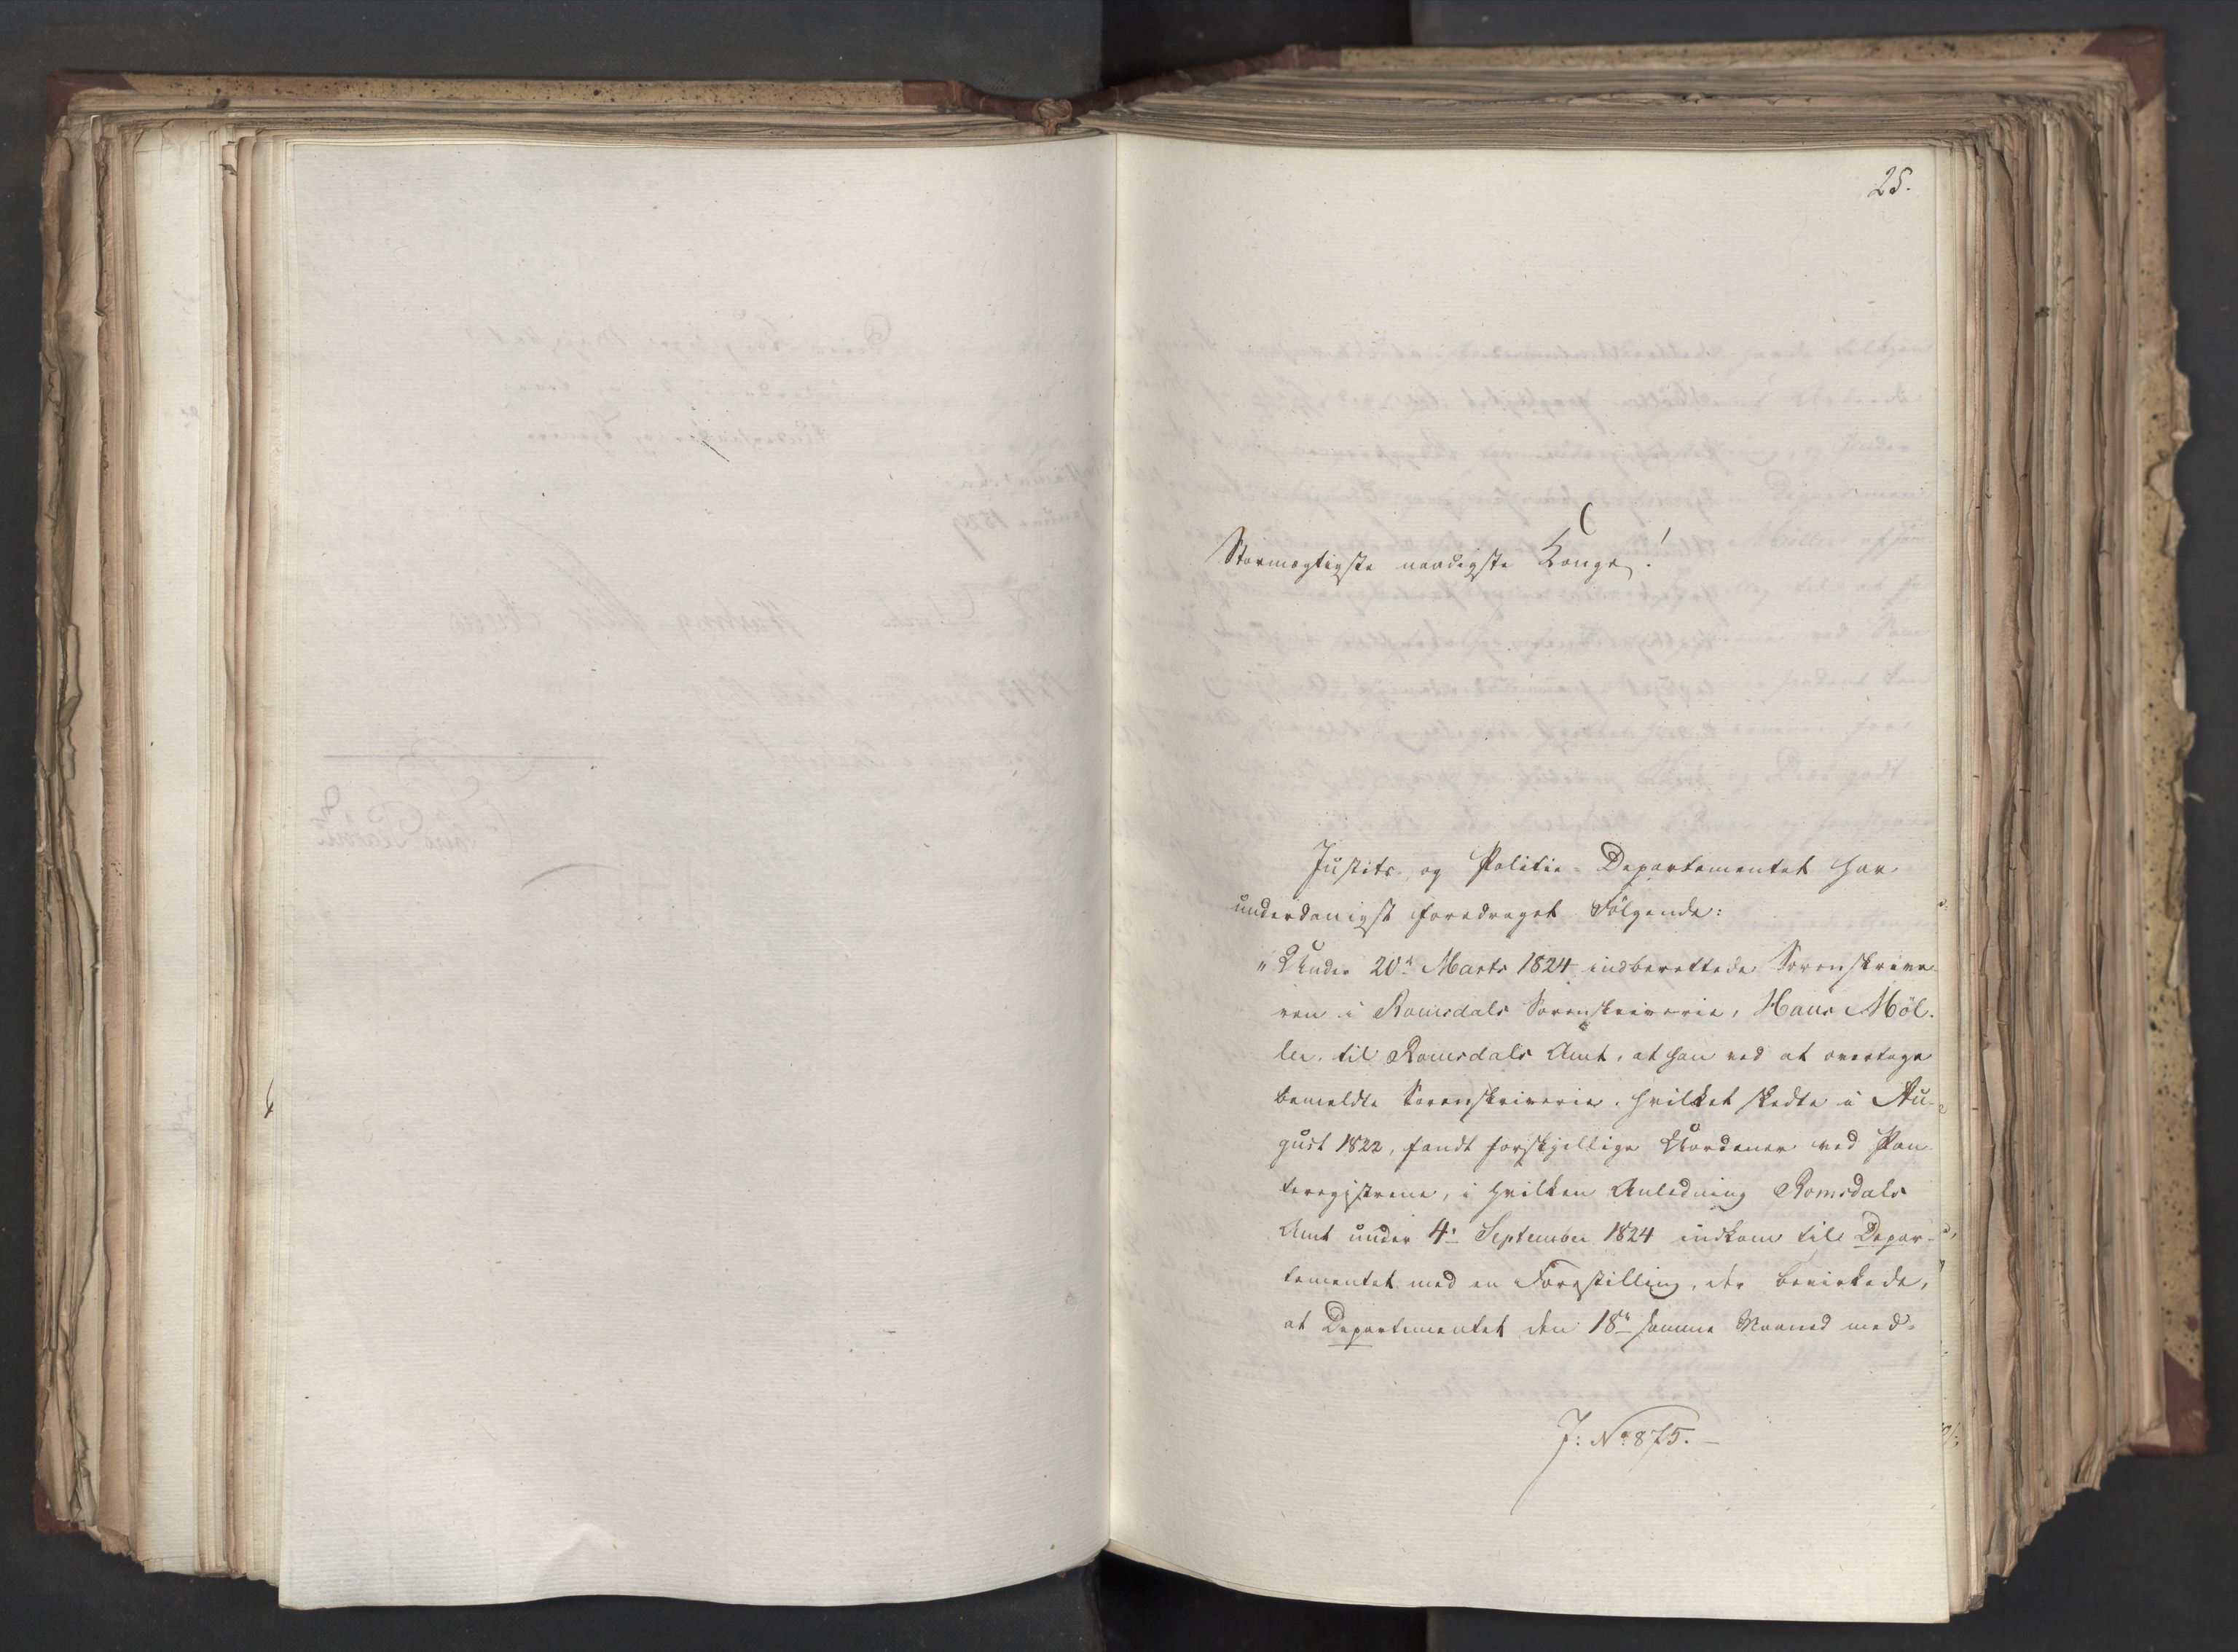 25.
Stormægtigste naadigste Konge!
Justits- og Politie-Departementet har
underdanigst foredraget Følgende:
"Under 20d Marts 1824 indberettede Sorenskrive-
ren i Romsdals Sorenskriverie, Hans Möl-
ler, til Romsdals Amt, at han ved at overtage
bemeldte Sorenskriverie, hvilket skedte i Au-
gust 1822, fandt forskjellige Uordener ved Pan-
teregistrene, i hvilken Anledning Romsdals
Amt under 4d September 1824 indkom til Depar-
tementet med en Forestilling, der bevirkede,
at Departementet den 18de samme Maaned med-
J: No 875.